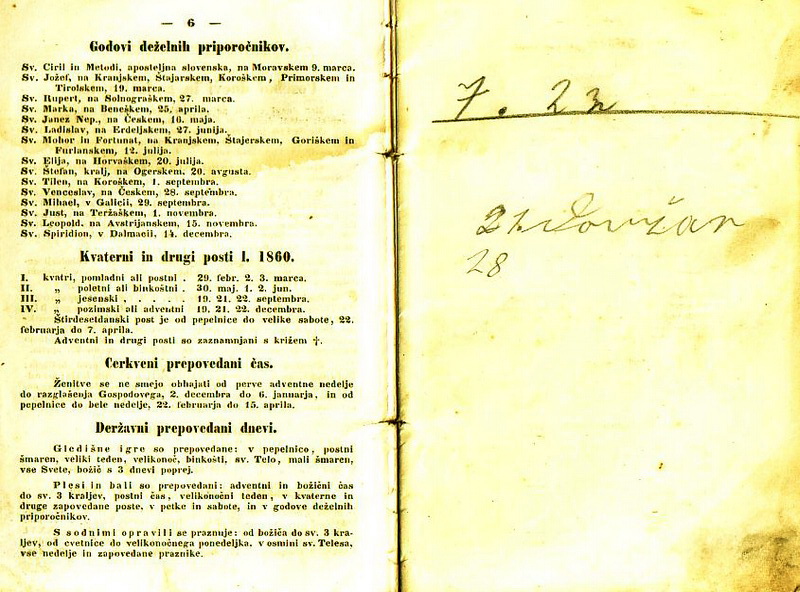 — 6 —
Godovi deželnih priporočnikov.
Sv. Ciril in Metodi, aposteljna slovenska, na Moravskem 9. marca.
Sv. Jožef, na Kranjskem, Štajarskem, Koroškem, Primorskem in
Tirolskem, 19. marca.
Sv. Rupert, na Solnograškem, 27. marca.
Sv. Marka, na Beneškem, 25. aprila.
Sv. Janez Nep., na Českem, 16. maja.
Sv. Ladislav, na Erdeljskem, 27. junija.
Sv. Mohor in Fortunat, na Kranjskem, Štajerskem, Goriškem in
Furlanskem, 12. julija.
Sv. Elija, na Horvaškem, 20. julija.
Sv. Štefan, kralj, na Ogerskem, 20. avgusta.
Sv. Tilen, na Koroškem, 1. septembra.
Sv. Venceslav, na Českem, 28. septembra.
Sv. Mihael, v Galicii, 29. septembra.
Sv. Just, na Teržaškem, 1. novembra.
Sv. Leopold, na Avstrijanskem, 15. novembra.
Sv. Spiridion, v Dalmacii, 14. decembra.
Kvaterni in drugi posti l. 1860.
I. kvatri, pomladni ali postni . 29. febr. 2. 3. marca.
II. „ poletni ali binkoštni . 30. maj. 1. 2. jun.
III. „ jesenski . . . . . 19. 21. 22. septembra.
IV. „ pozimski ali adventni 19. 21. 22. decembra.
Štirdesetdanski post je od pepelnice do velike sabote, 22.
februarja do 7. aprila.
Adventni in drugi posti so zaznamnjani s križem †.
Cerkveni prepovedani čas.
Ženitve se ne smejo obhajati od perve adventne nedelje
do razglašenja Gospodovega, 2. decembra do 6. januarja, in od
pepelnice do bele nedelje, 22. februarja do 15. aprila.
Deržavni prepovedani dnevi.
Gledišne igre so prepovedane: v pepelnico, postni
šmaren, veliki teden, velikonoč, binkošti, sv. Telo, mali šmaren,
vse Svete, božič s 3 dnevi poprej.
Plesi in bali so prepovedani: adventni in božični čas
do sv. 3 kraljev, postni čas, velikonočni teden, v kvaterne in
druge zapovedane poste, v petke in sabote, in v godove deželnih
priporočnikov.
S sodnimi opravili se praznuje: od božiča do sv. 3 kra-
ljev, od cvetnice do velikonočnega ponedeljka, v osmini sv. Telesa,
vse nedelje in zapovedane praznike.
7. 23
21.
28